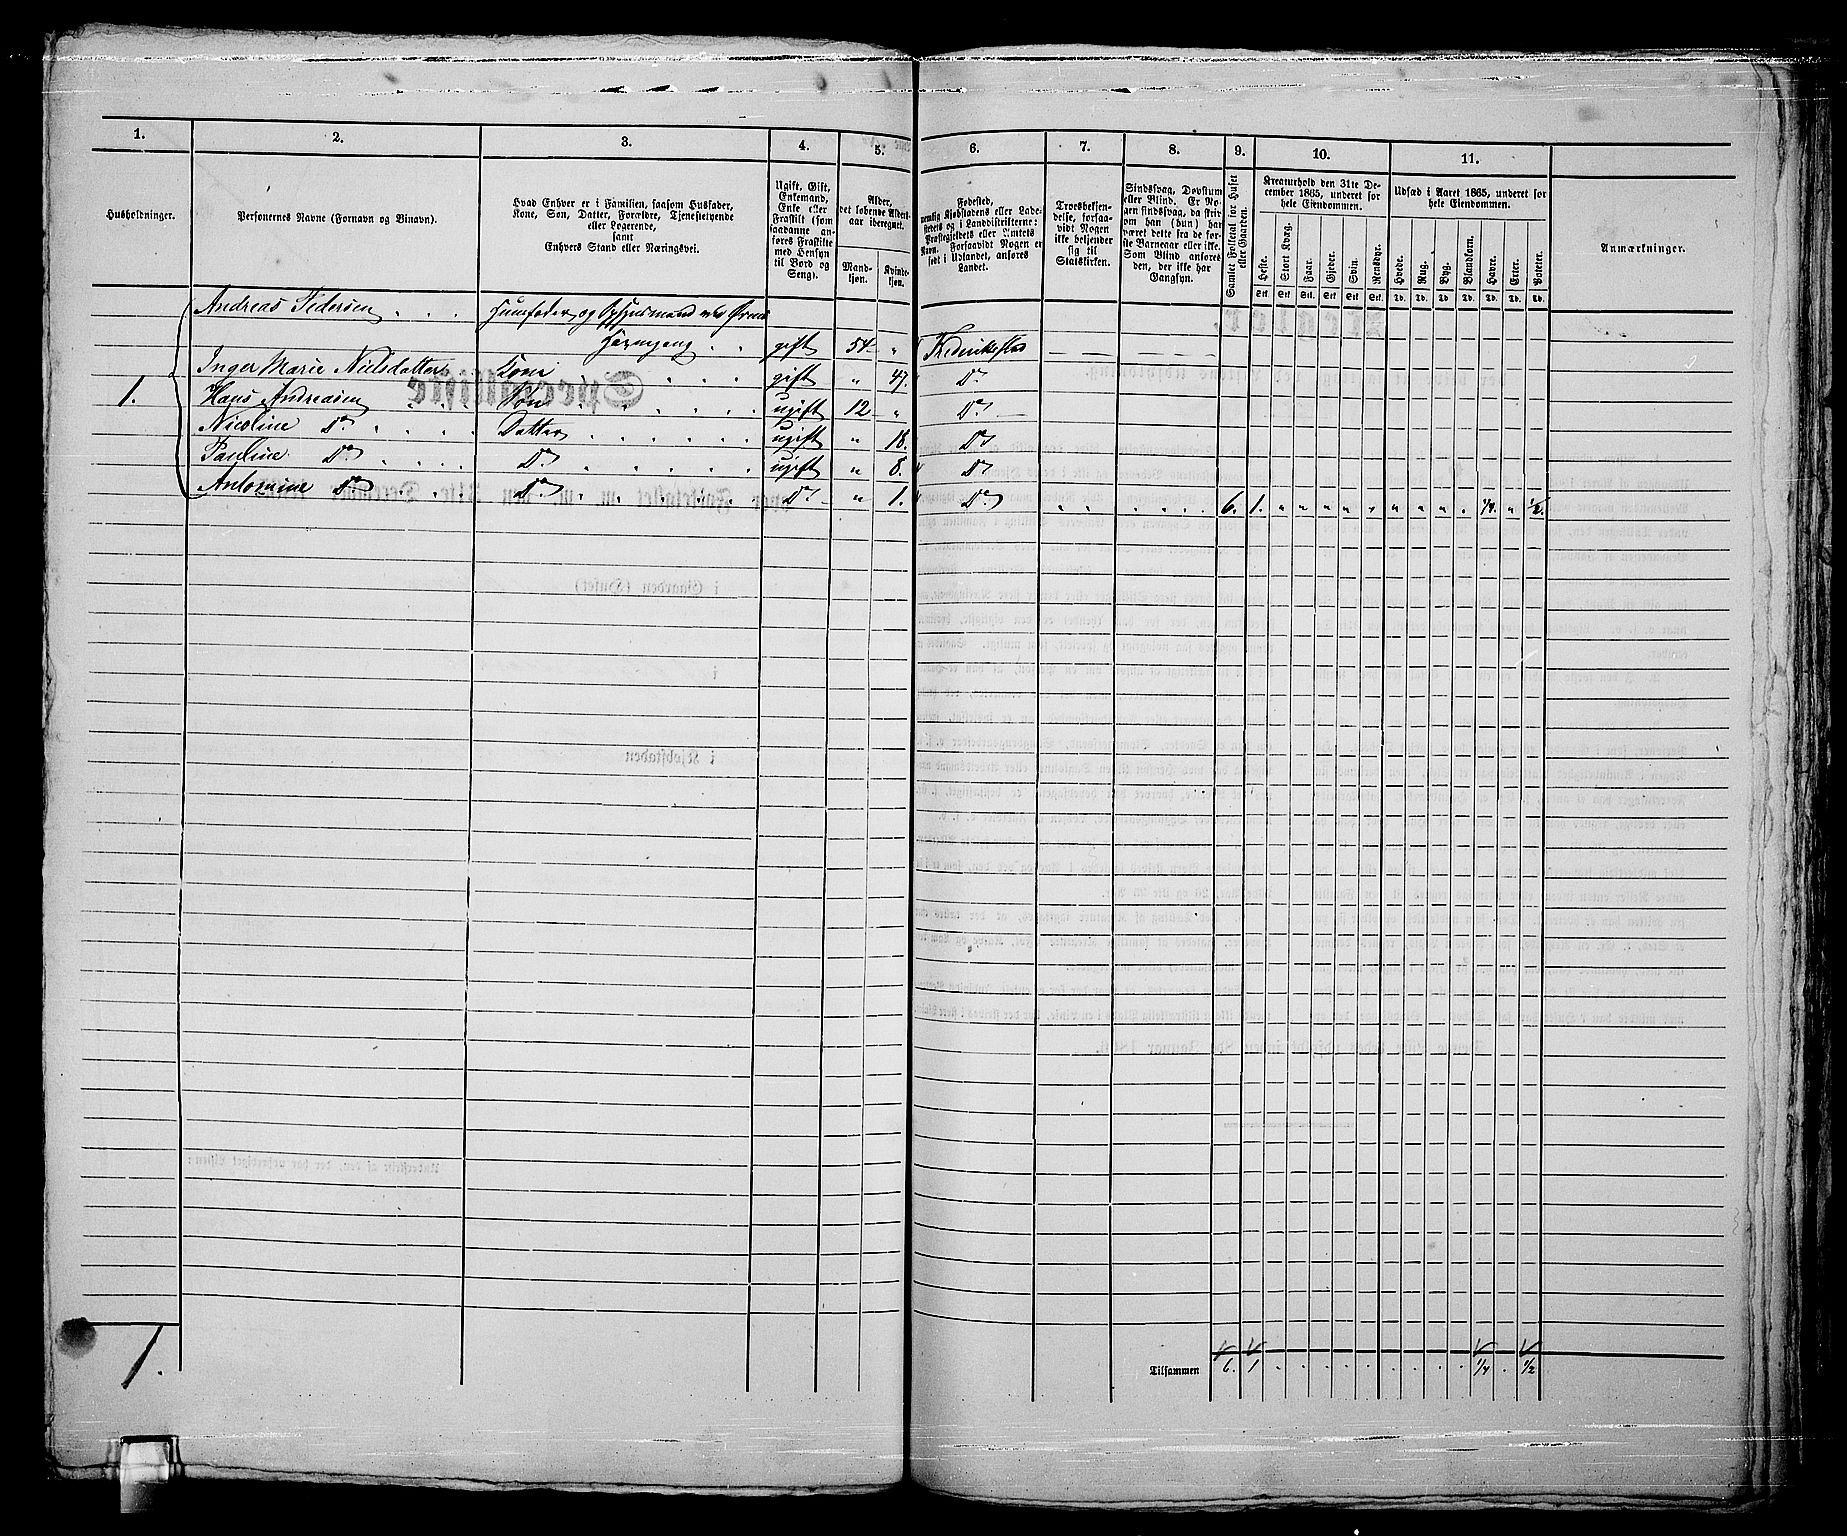 1. 2. 3. 4. 5. 6. 7. 8. 9. 10. 11.
Husholdninger.
Personernes Navne (Fornavn og Binavn).
Hvad Enhver er i Familien, saasom Husfader,
Kone, Søn, Datter, Forældre, Tjenestetyende
eller Logerende,
samt
Enhvers Stand eller Næringsvei.
Ugift, Gift,
Enkemand,
Enke eller
Fraskilt (som
saadanne an-
føres Fraskilte
med Hensyn
til Bord og
Seng).
Alder,
det løbende Alders-
aar iberegnet.
Mand-
kjøn.
Kvinde-
kjøn.
Fødested,
nemlig Kjøbstadens eller Lade-
stedets og i Landdistrikterne:
Præstegjeldets eller Amtets
Navn. Forsaavidt Nogen er
født i Udlandet, anføres
Landet.
Troesbekjen-
delse, forsaa-
vidt Nogen
ikke bekjender
sig til
Statskirken.
Sindssvag, Døvstum
eller Blind. Er No-
gen sindssvag, da hvis
om han (hun) har
været dette fra de før-
ste Barneaar eller ikke.
Som Blind anføres
den, der ikke har
Gangsyn.
Samlet Folketal for Huset
eller Gaarden.
Kreaturhold den 31te De-
cember 1865, underet for
hele Eiendommen.
Heste. Stort Kvæg. Faar. Gjeder. Svin. Rensdyr.
Stk. Stk. Stk. Stk. Stk. Stk.
Udsæd i Aaret 1865, underet for
hele Eiendommen.
Hvede. Rug. Byg. Blandkorn. Havre. Erter. Poteter.
Td. Td. Td. Td. Td. Td. Td.
Anmærkninger.
Andreas Pedersen . . . Huusfader og Opsynsmand ved
. . gift 54 " Frederikstad
Inger Marie Nielsdatter Kone . . . . gift " 47. Do
1. Hans Andreasen . . Søn . . . . ugift 12 " Do
Nicoline Do . . . . Datter . . . . . . ugift " 18. Do
Pauline Do . . . . Do . . . . . . ugift " 8. Do
Antomine Do . . Do . . . . . . Do " 1. Do " " . . . . 6. 1. " " " " " " " " . 1/4. " 1/2.
1.
Tilsammen 6. 1 . . . . . . . . . 1/4 . 1/2